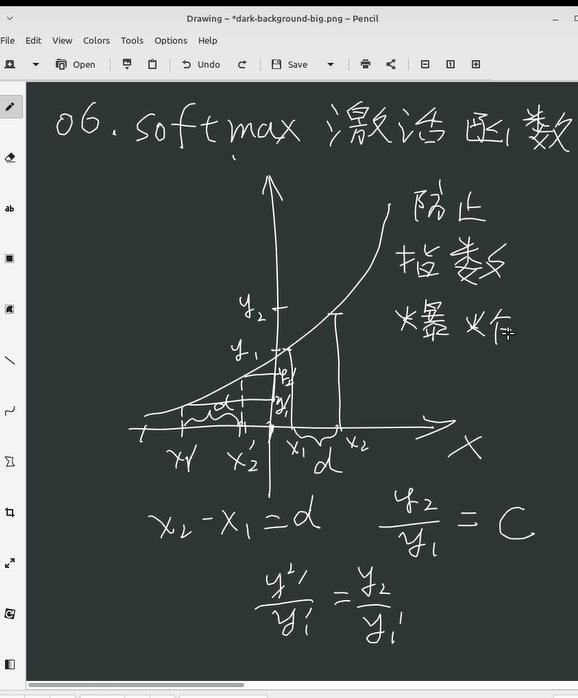 Drawing ~ *dark-background-big.png ~ Pencil
File Edit View Colors Tools Options Help
Open Undo Save
ab
06. softmax 激活函数
防止
指数
爆炸
y₂
y₁
y₂'
y₁'
d
x₁' x₂' x₁ x₂
d
x
x₂-x₁=d y₂/y₁ = C
y₂'/y₁' = y₂/y₁